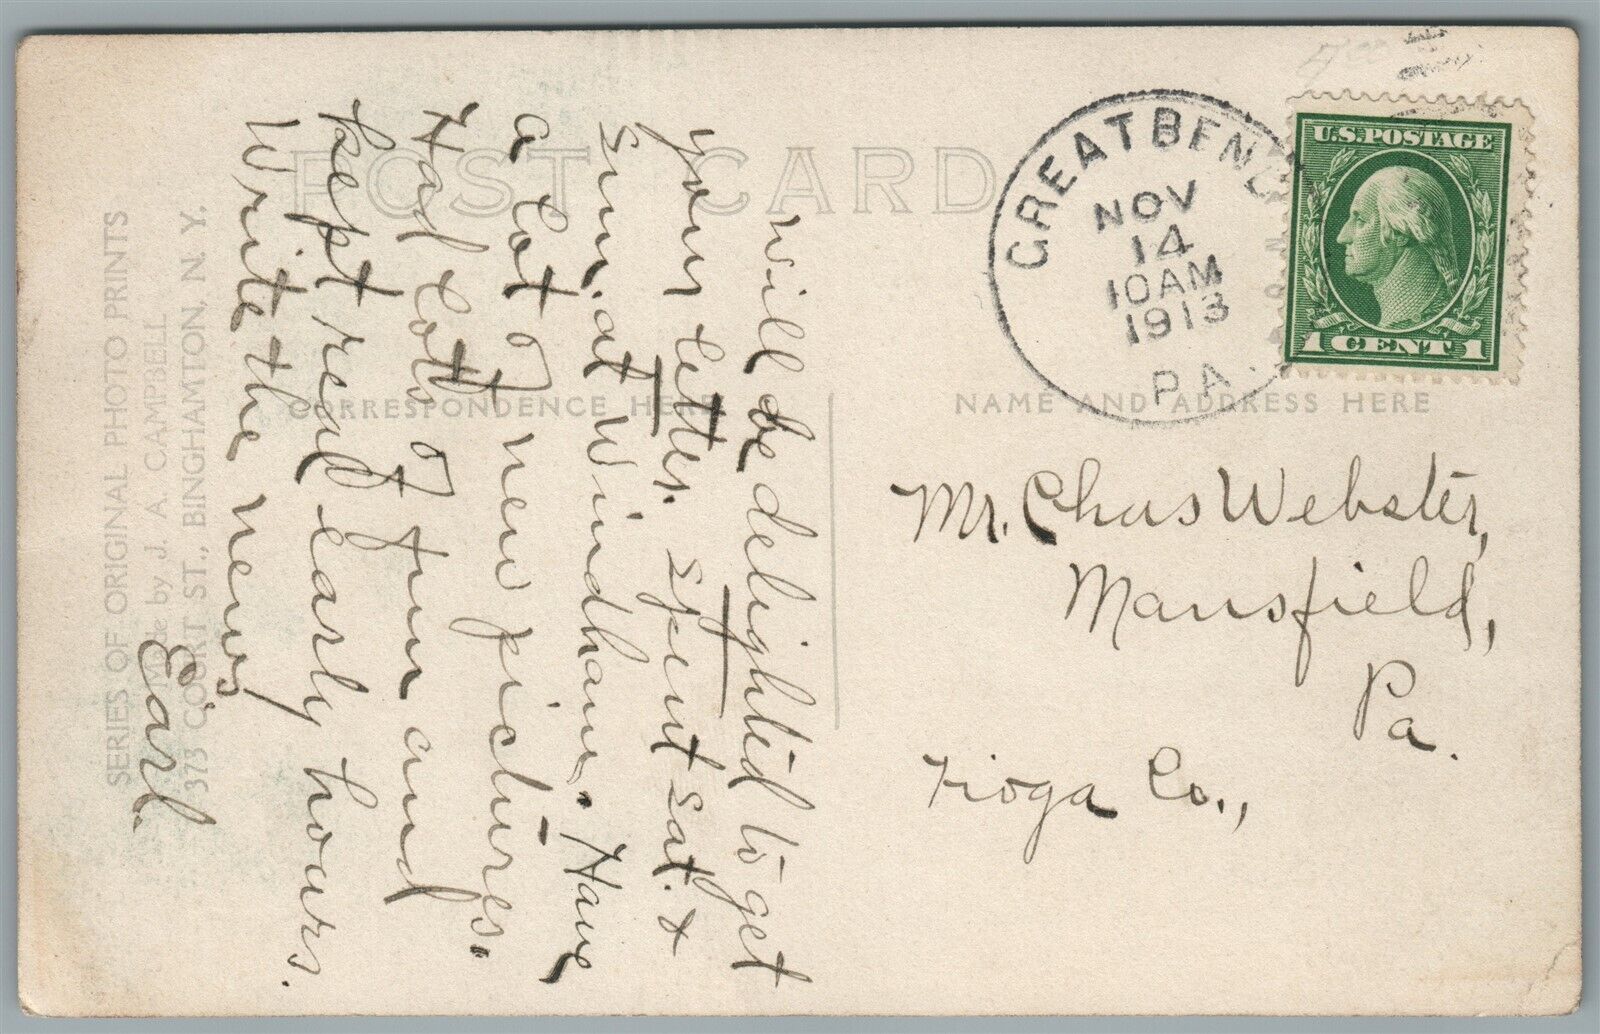 POST CARD
CORRESPONDENCE HERE
NAME AND ADDRESS HERE
SERIES OF ORIGINAL PHOTO PRINTS
Made by J. A. CAMPBELL
373 COURT ST., BINGHAMTON, N. Y.
GREAT BEND
NOV
14
10AM
1913
PA.
U.S. POSTAGE
1 CENT 1
will be delighted to get
your letter. spent sat. &
sun. at Windham. Have
a lot of new pictures.
Had lots of fun and
kept real early hours.
Write the news
Earl.
Mr. Chas Webster,
Mansfield,
Pa.
Tioga Co.,